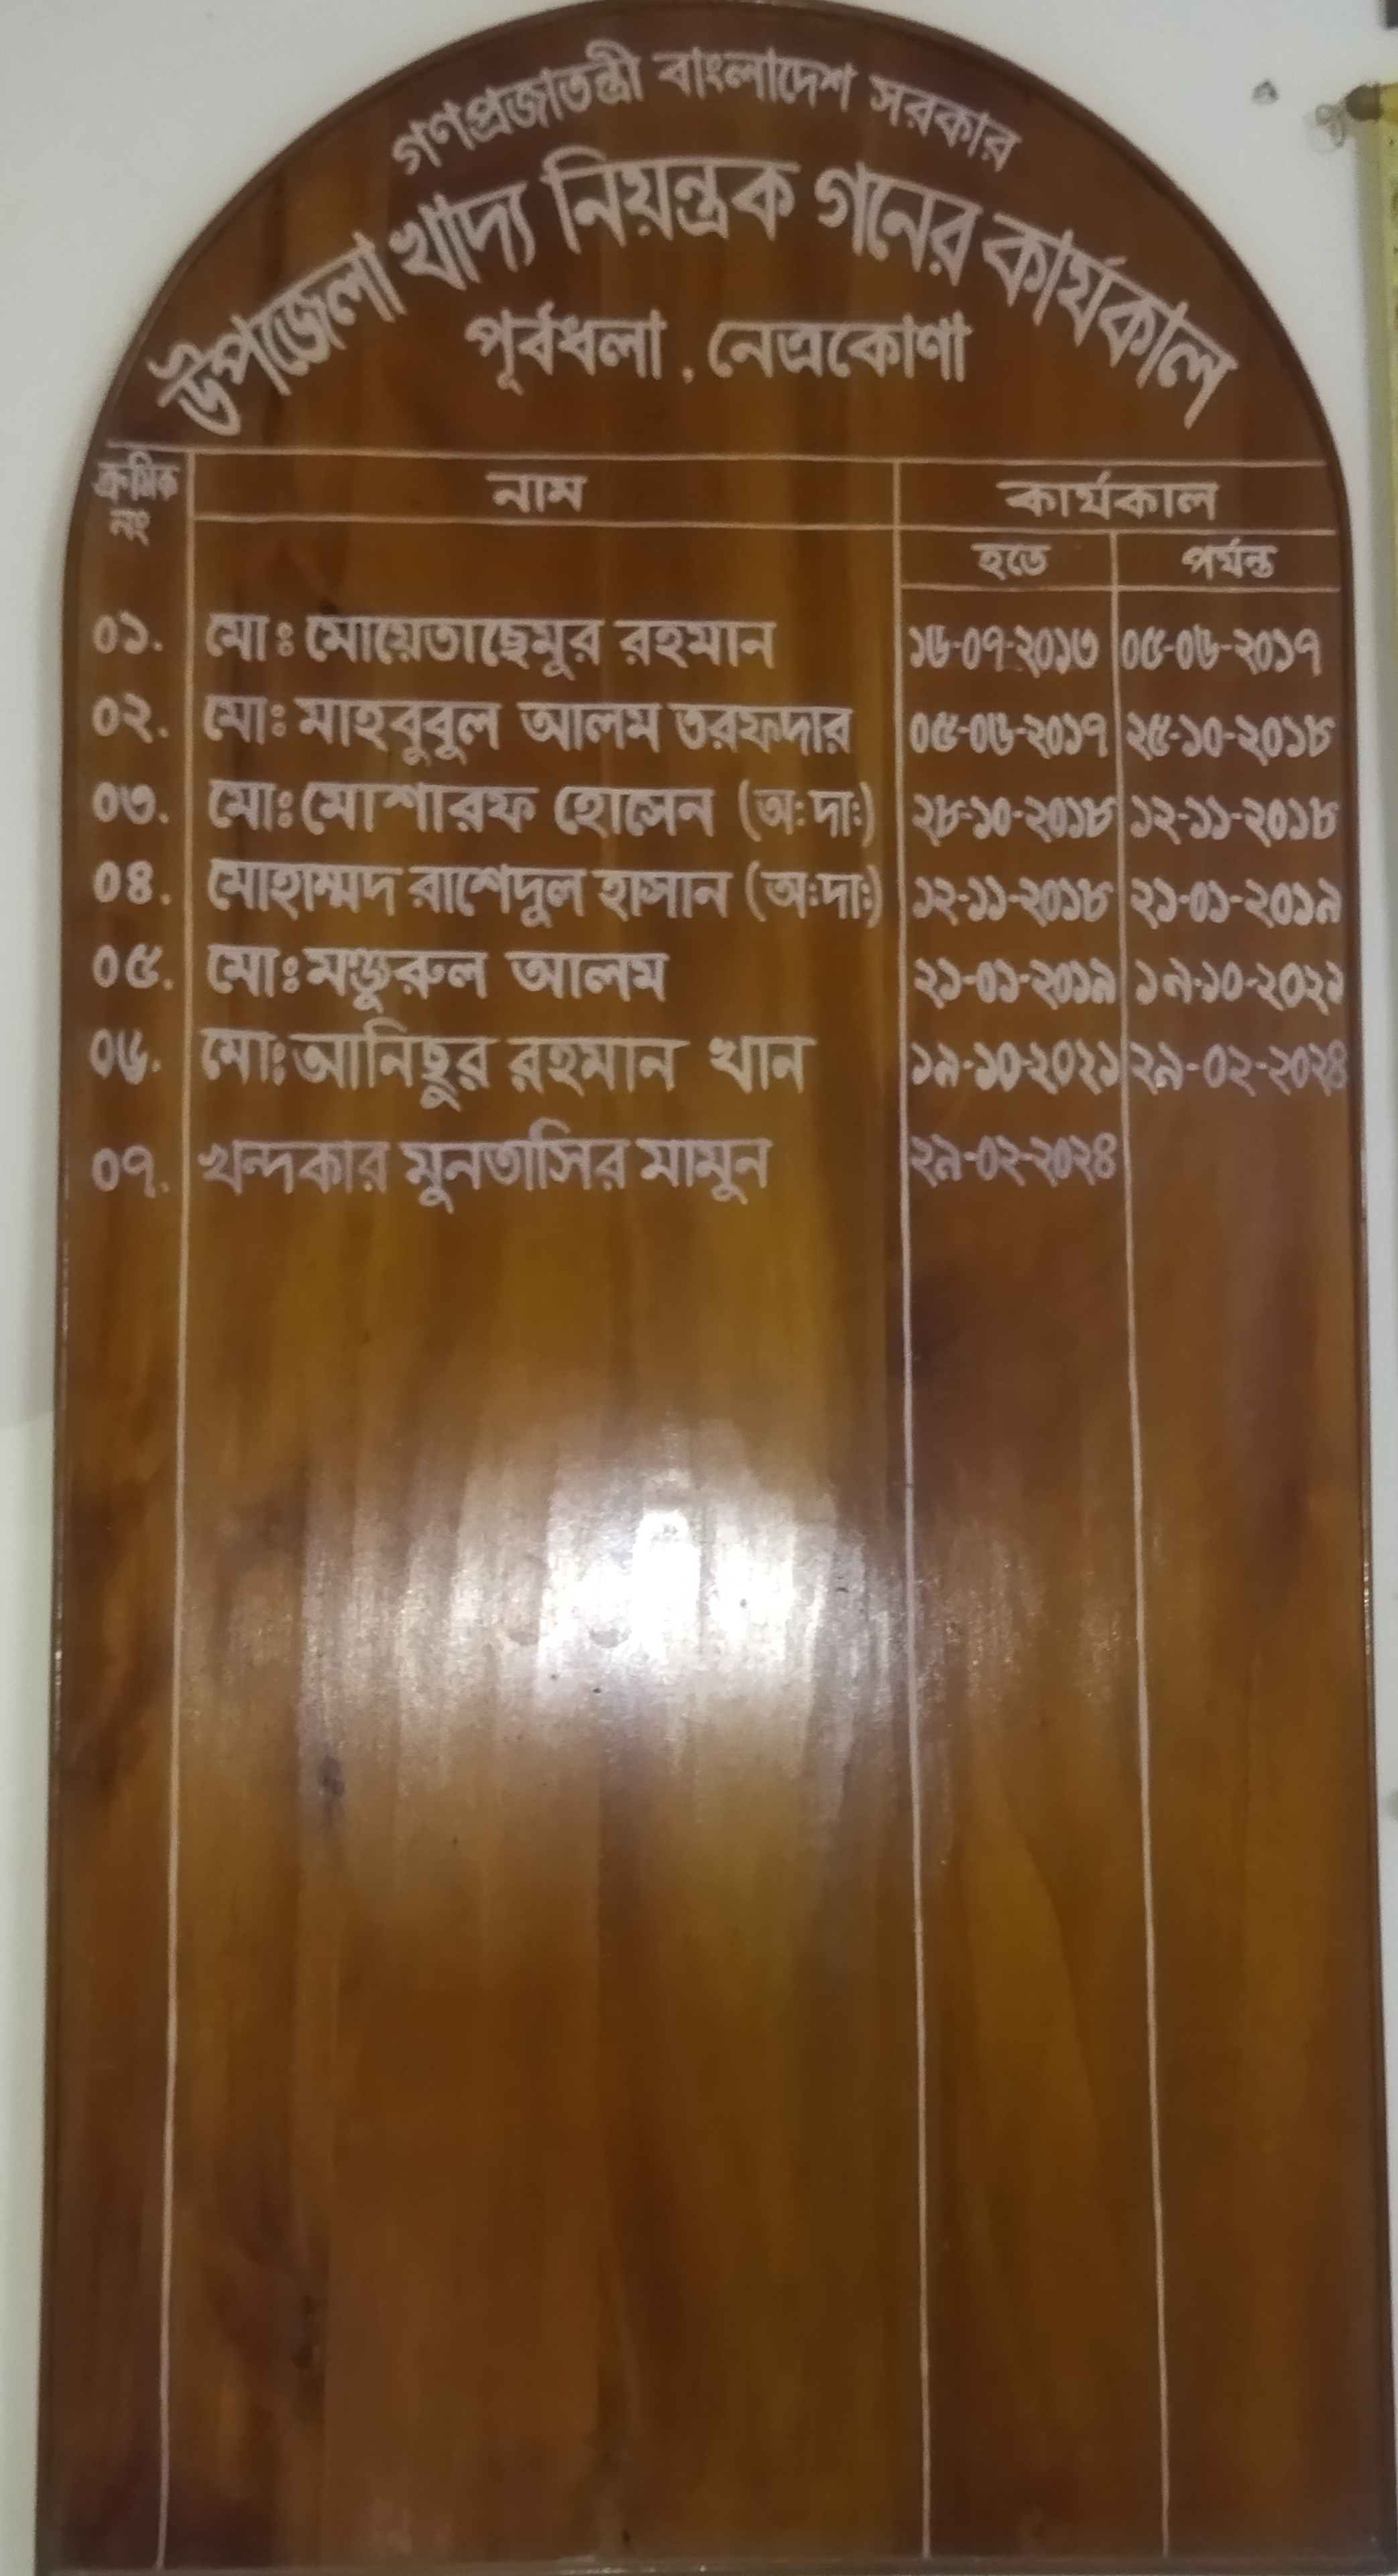 গণপ্রজাতন্ত্রী বাংলাদেশ সরকার
উপজেলা খাদ্য নিয়ন্ত্রক গনের কার্যকাল
পূর্বধলা, নেত্রকোণা
ক্রমিক নং নাম কার্যকাল
হতে পর্যন্ত
০১. মোঃ মোয়েতাছেমুর রহমান ১৬-০৭-২০১৩ ০৫-০৬-২০১৭
০২. মোঃ মাহবুবুল আলম তরফদার ০৫-০৬-২০১৭ ২৫-১০-২০১৮
০৩. মোঃ মোশারফ হোসেন (অঃদাঃ) ২৮-১০-২০১৮ ১২-১১-২০১৮
০৪. মোহাম্মদ রাশেদুল হাসান (অঃদাঃ) ১২-১১-২০১৮ ২১-০১-২০১৯
০৫. মোঃ মঞ্জুরুল আলম ২১-০১-২০১৯ ১৯-১০-২০২১
০৬. মোঃ আনিছুর রহমান খান ১৯-১০-২০২১ ২৯-০২-২০২৪
০৭. খন্দকার মুনতাসির মামুন ২৯-০২-২০২৪